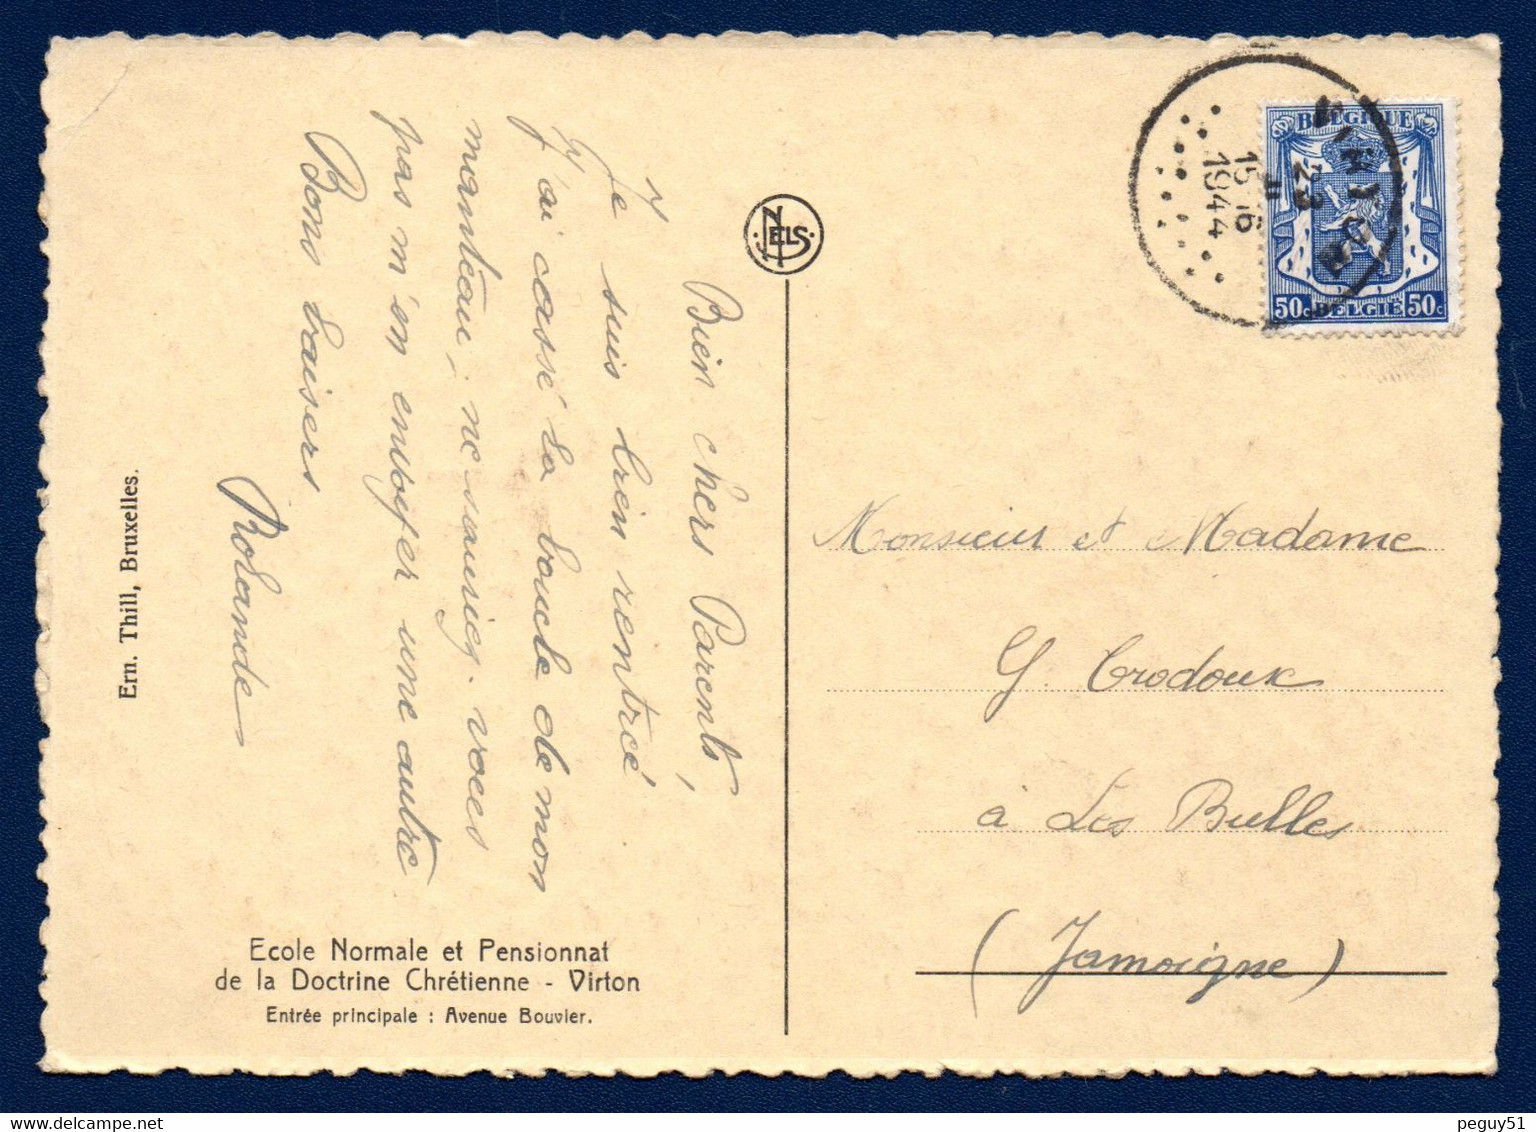 Bien chers Parents,
Je suis bien rentré
J'ai cassé la boucle de mon
manteau, ne sauriez-vous
pas m'en envoyer une autre
Bons baisers
Rolande
Ecole Normale et Pensionnat
de la Doctrine Chrétienne - Virton
Entrée principale : Avenue Bouvier.
Ern. Thill, Bruxelles.
NELS
BELGIQUE
50c BELGIË 50c
VIRTON
23
15 6
1944
Monsieur et Madame
G. Trodoux
à Les Bulles
(Jamoigne)
peguy51